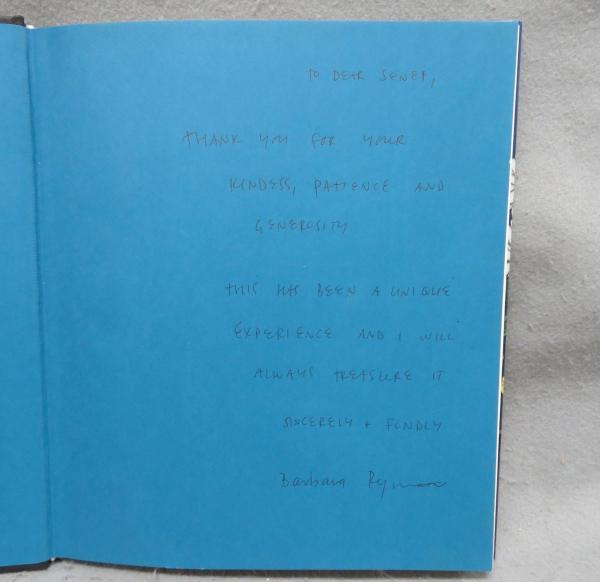 TO DEAR SENET,
THANK YOU FOR YOUR
KINDESS, PATIENCE AND
GENEROSITY
THIS HAS BEEN A UNIQUE
EXPERIENCE AND I WILL
ALWAYS TREASURE IT
SINCERELY + FONDLY
Barbara